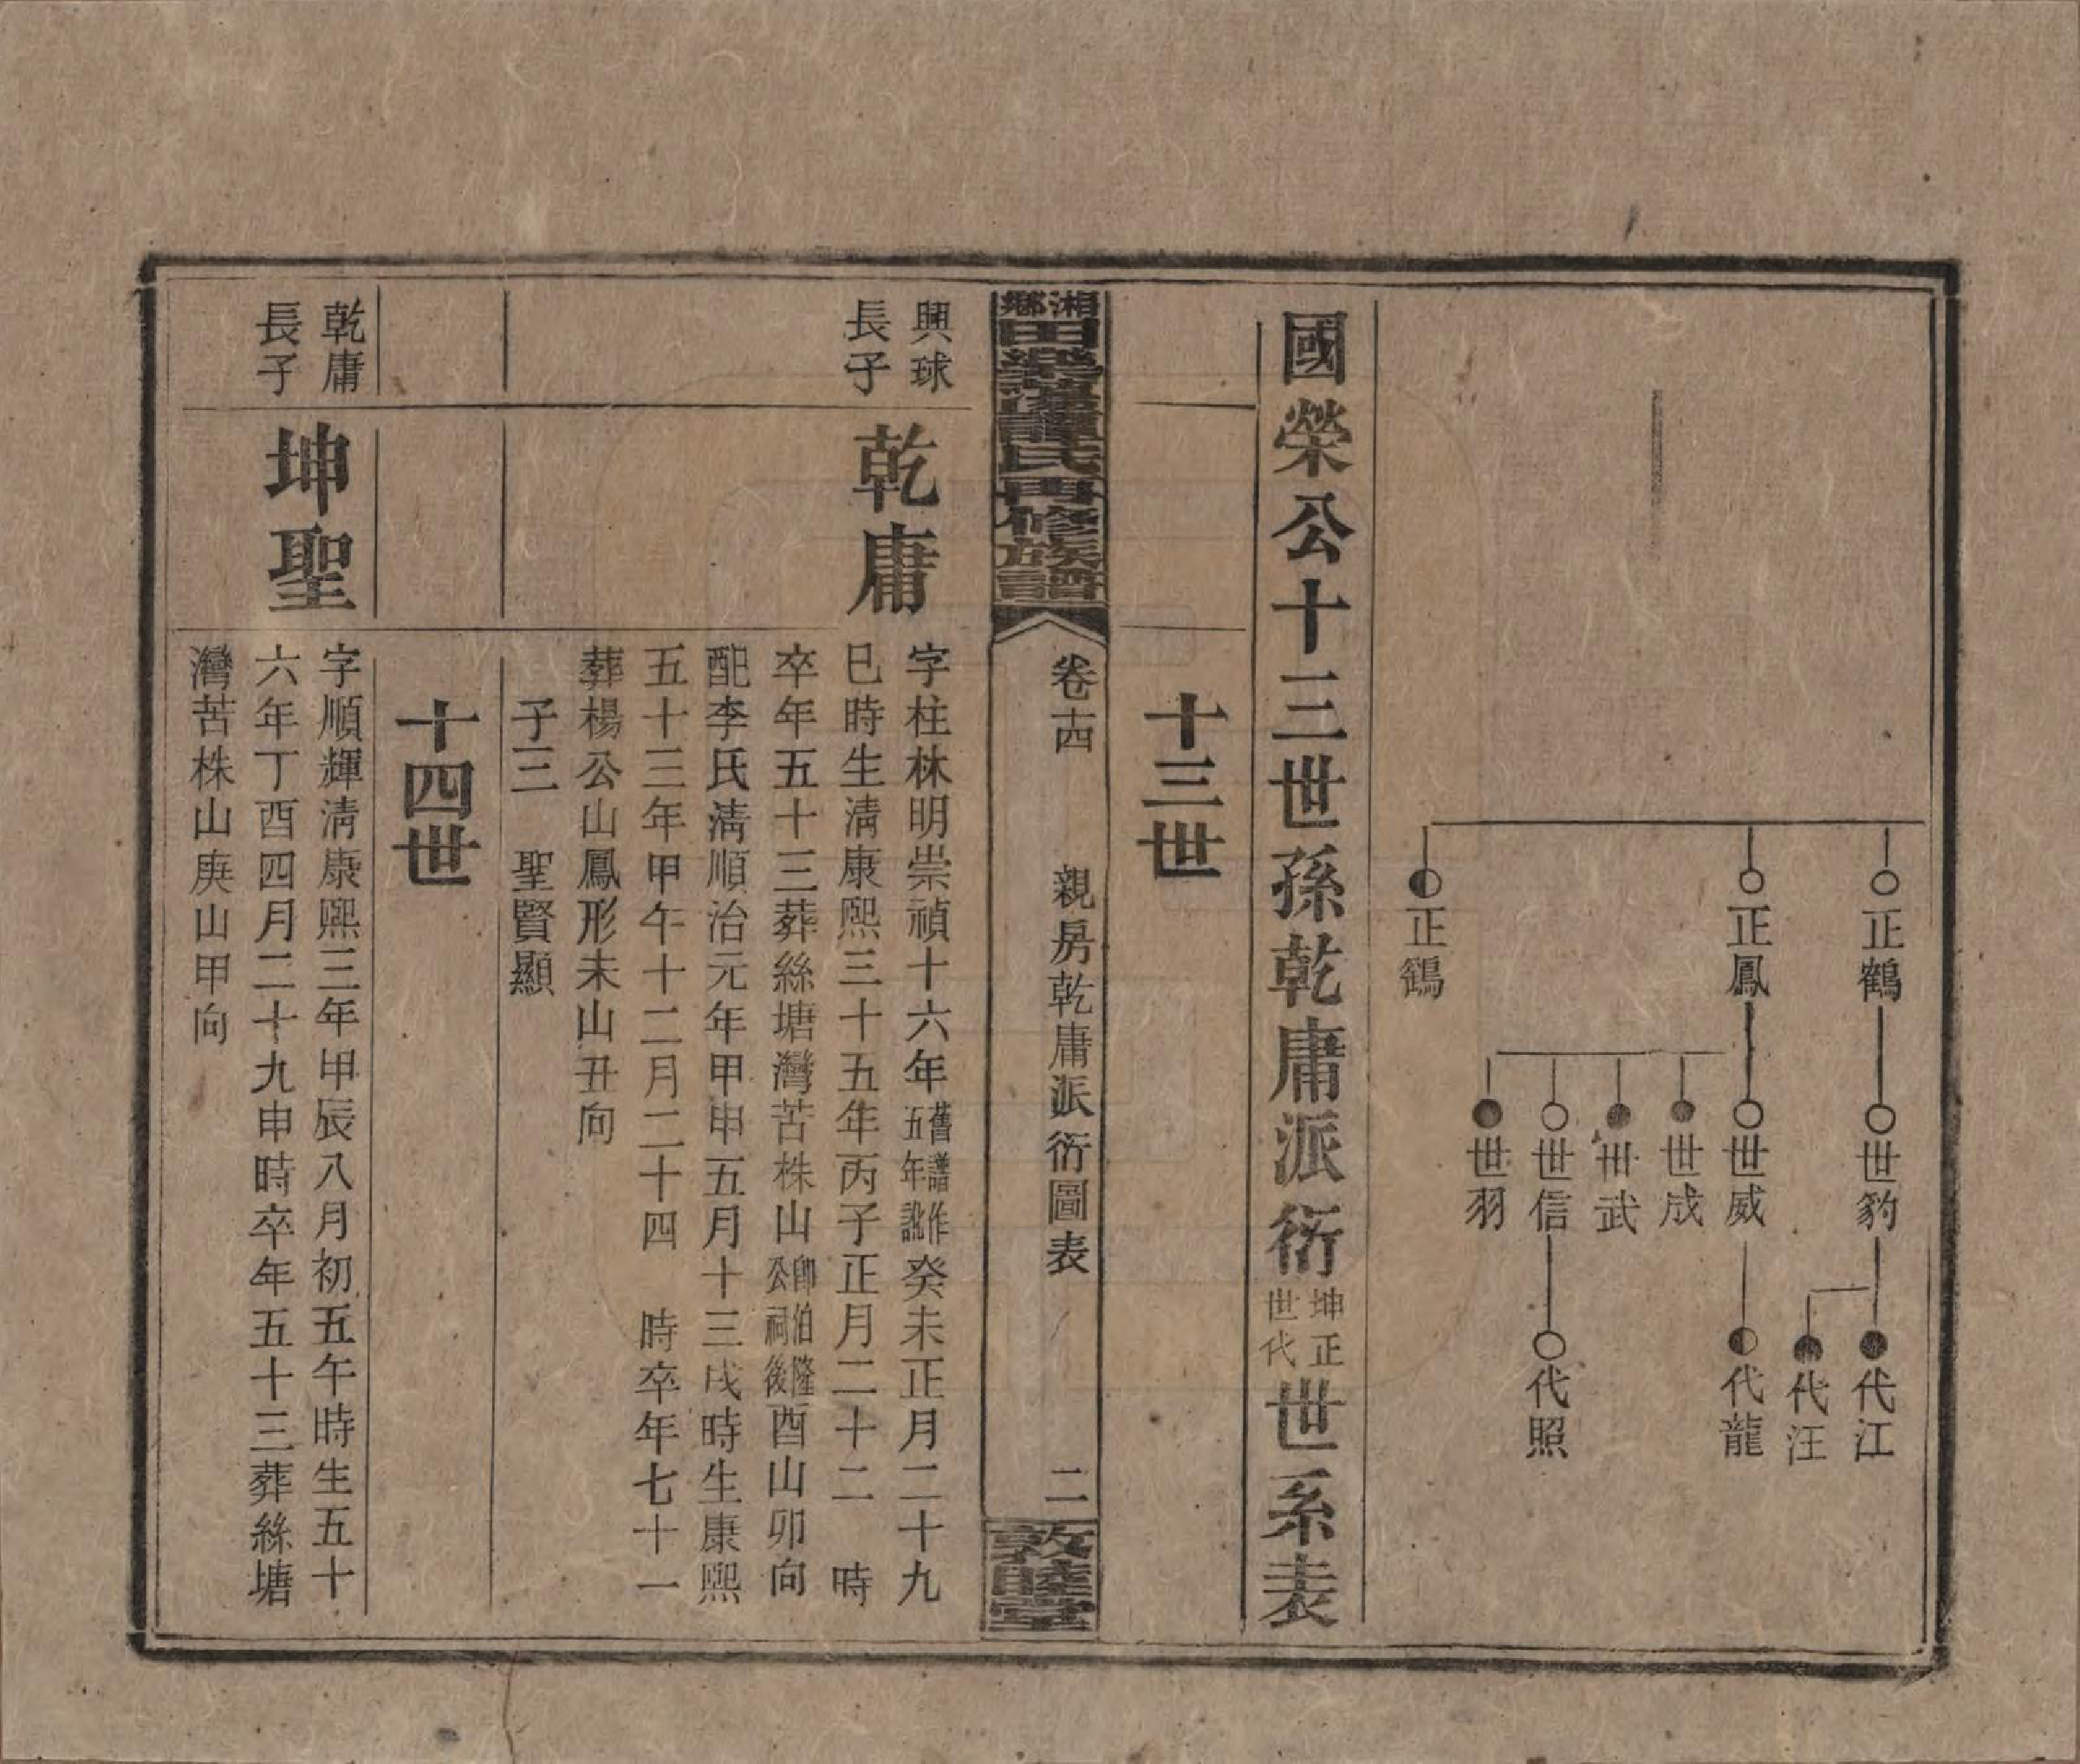 正鶴
正鳳
正鶴
世豹
世威
世成
世武
世信
世羽
代江
代汪
代龍
代照
國榮公十三世孫乾庸派衍坤正世代世系表
十三世
湘鄉田樂蕭氏再修族譜
卷十四
親房乾庸派衍圖表
二
敦睦堂
興球
長子
乾庸
字柱林明崇禎十六年舊譜作五年訛癸未正月二十九
巳時生清康熙三十五年丙子正月二十二 時
卒年五十三葬絲塘灣苦株山即伯隆公祠後酉山卯向
配李氏清順治元年甲申五月十三戌時生康熙
五十三年甲午十二月二十四 時卒年七十一
葬楊公山鳳形未山丑向
子三 聖賢顯
十四世
乾庸
長子
坤聖
字順輝清康熙三年甲辰八月初五午時生五十
六年丁酉四月二十九申時卒年五十三葬絲塘
灣苦株山庚山甲向